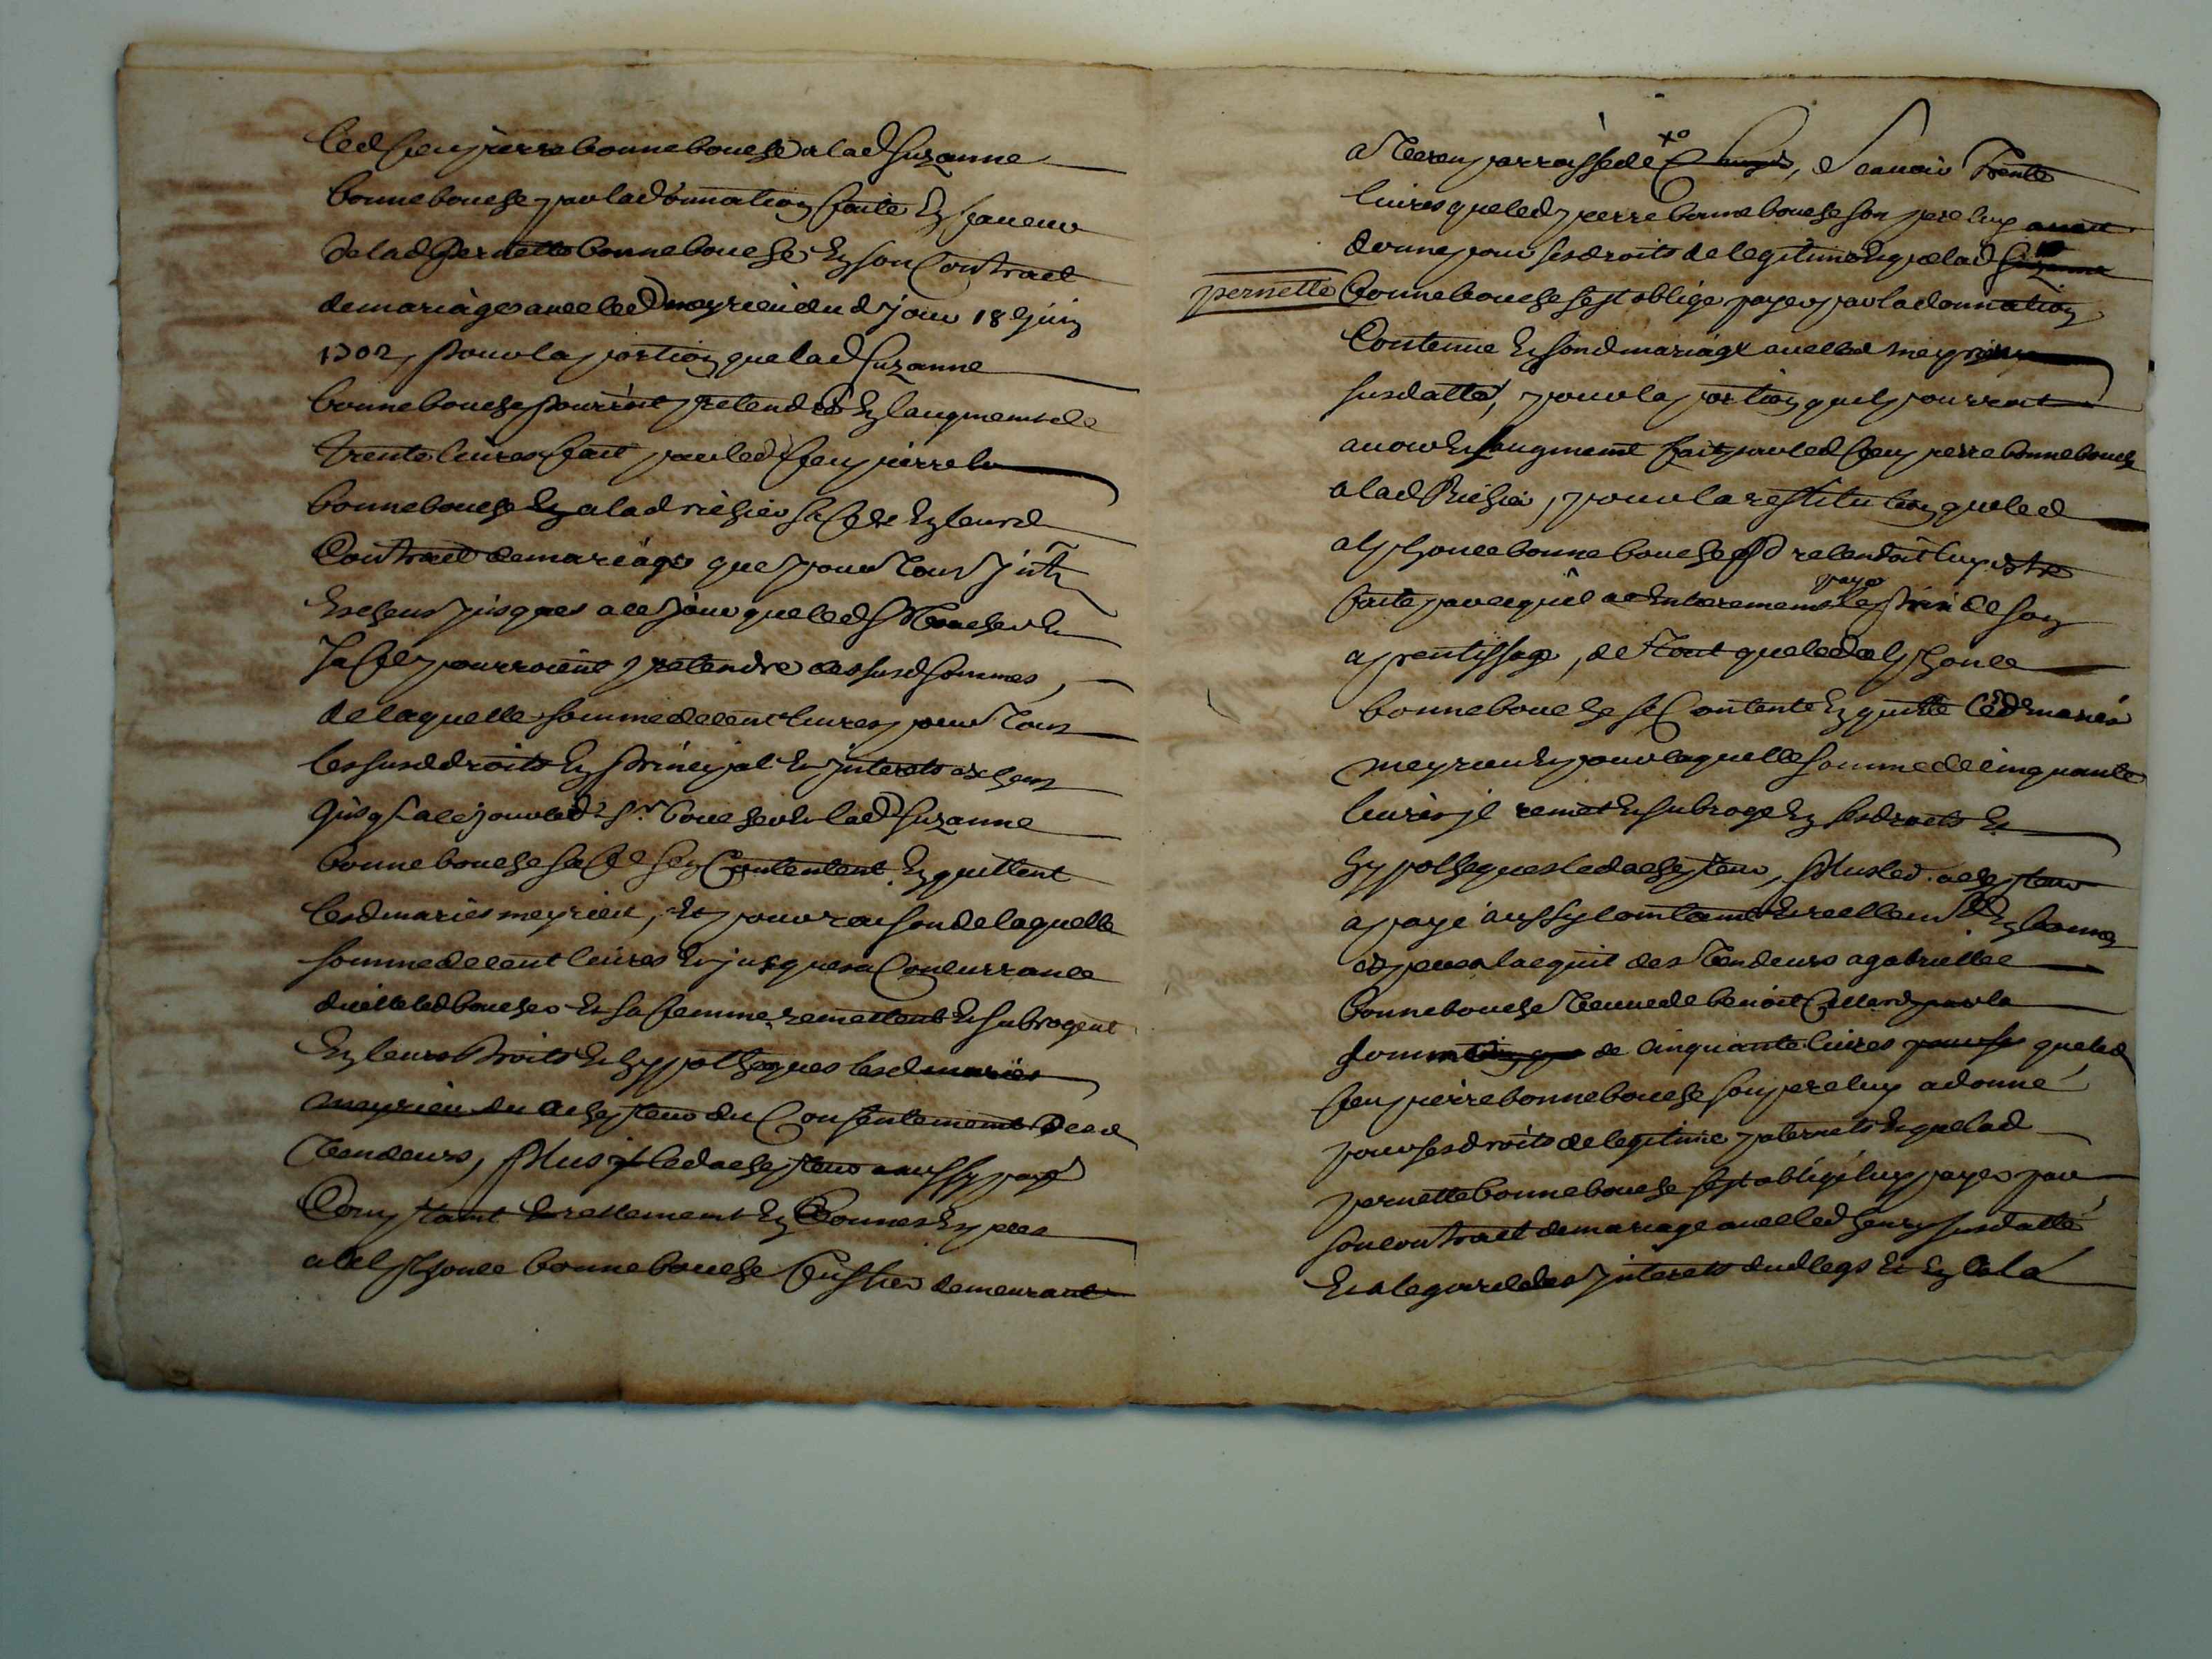 led feu pierre bonnebouche a lad Suzanne
bonnebouche par la donnation faite En faveur
de lad pernette bonnebouche En son Contract
de mariage avec led meyrieu dud jour 18 juin
1702, pour la portion que lad Suzanne
bonnebouche pourroit pretendre En laugment de
trente livres fait par led feu pierre
bonnebouche a lad richier sa fe En leurd
Contract de mariage que pour tous
Escheus jusques a ce jour que led Sr boucher Et
sa fe pourroient pretendre des susd sommes,
de laquelle somme de cent livres pour tous
les susd droits En principal Et interets escheus
jusqs a ce jour led Sr boucher Et lad Suzanne
bonnebouche sa fe sen Contentent En quittent
lesd mariés meyrieu, Et pour raison de laquelle
somme de cent livres Et jusques a Concurrance
dicelle led boucher Et sa femme remettent Et subrogent
En leurs droits Et hyppotheques lesd mariés
meyrieu du achepteur du Consentement desd
Vendeurs, plus led achepteur a aussy payé
Comptant Et reellement En bonnes Especes
a alphonce bonnebouche demeurant
a parroisse de , Scavoir Trente
livres que led pierre bonnebouche son pere luy avoit
donne pour ses droits de legitime Et que lad
pernette bonnebouche sest oblige payer par la donnation
Contenue En sond mariage avec led meyrieu
susdatté, pour la portion quil pourroit
avoir En laugment fait par led feu pierre bonnebouche
a lad Richier, pour la restitution que led
alphonce bonnebouche pretendoit luy estre
faite par ce quil a Entierement payé le prix de son
apprentissage, de Tout que led alphonce
bonnebouche se Contente En quitte lesd mariés
meyrieu Et pour laquelle somme de cinquante
livres il remet Et subroge En ses droits Et
hyppotheques led achepteur, plus led achepteur
a payé aussy Comptant Et reellement En bonnes
Especes a lacquit des Vendeurs a gabrielle
bonnebouche Veuve de benoit la
somme de cinquante livres que led
feu pierre bonnebouche son pere luy a donné
pour ses droits de legitime paternels Et que lad
pernette bonnebouche sest obligé luy payer par
son contract de mariage avec led henry susdatté
Et a legard des interets dud legs Et En cela